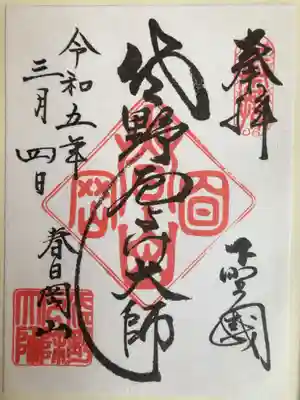 奉拝
下野國
佐野厄よけ大師
令和五年
三月四日
春日岡山